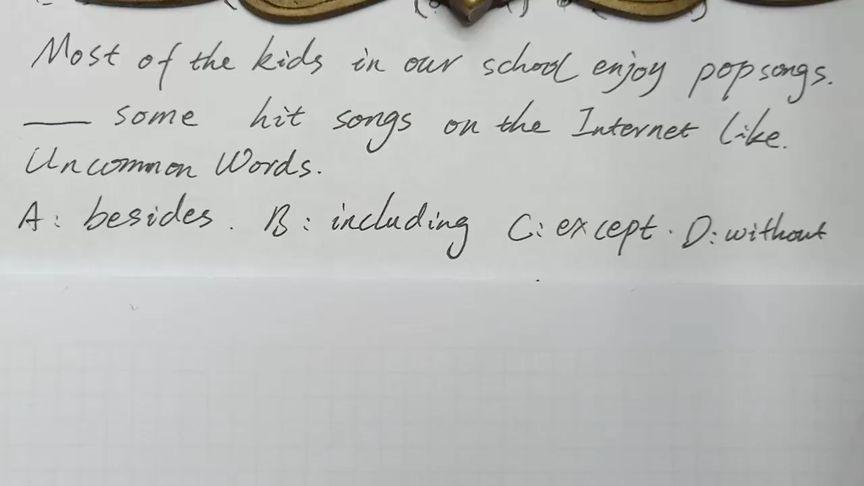 Most of the kids in our school enjoy pop songs.
___ some hit songs on the Internet like.
Uncommon Words.
A: besides. B: including C: except. D: without